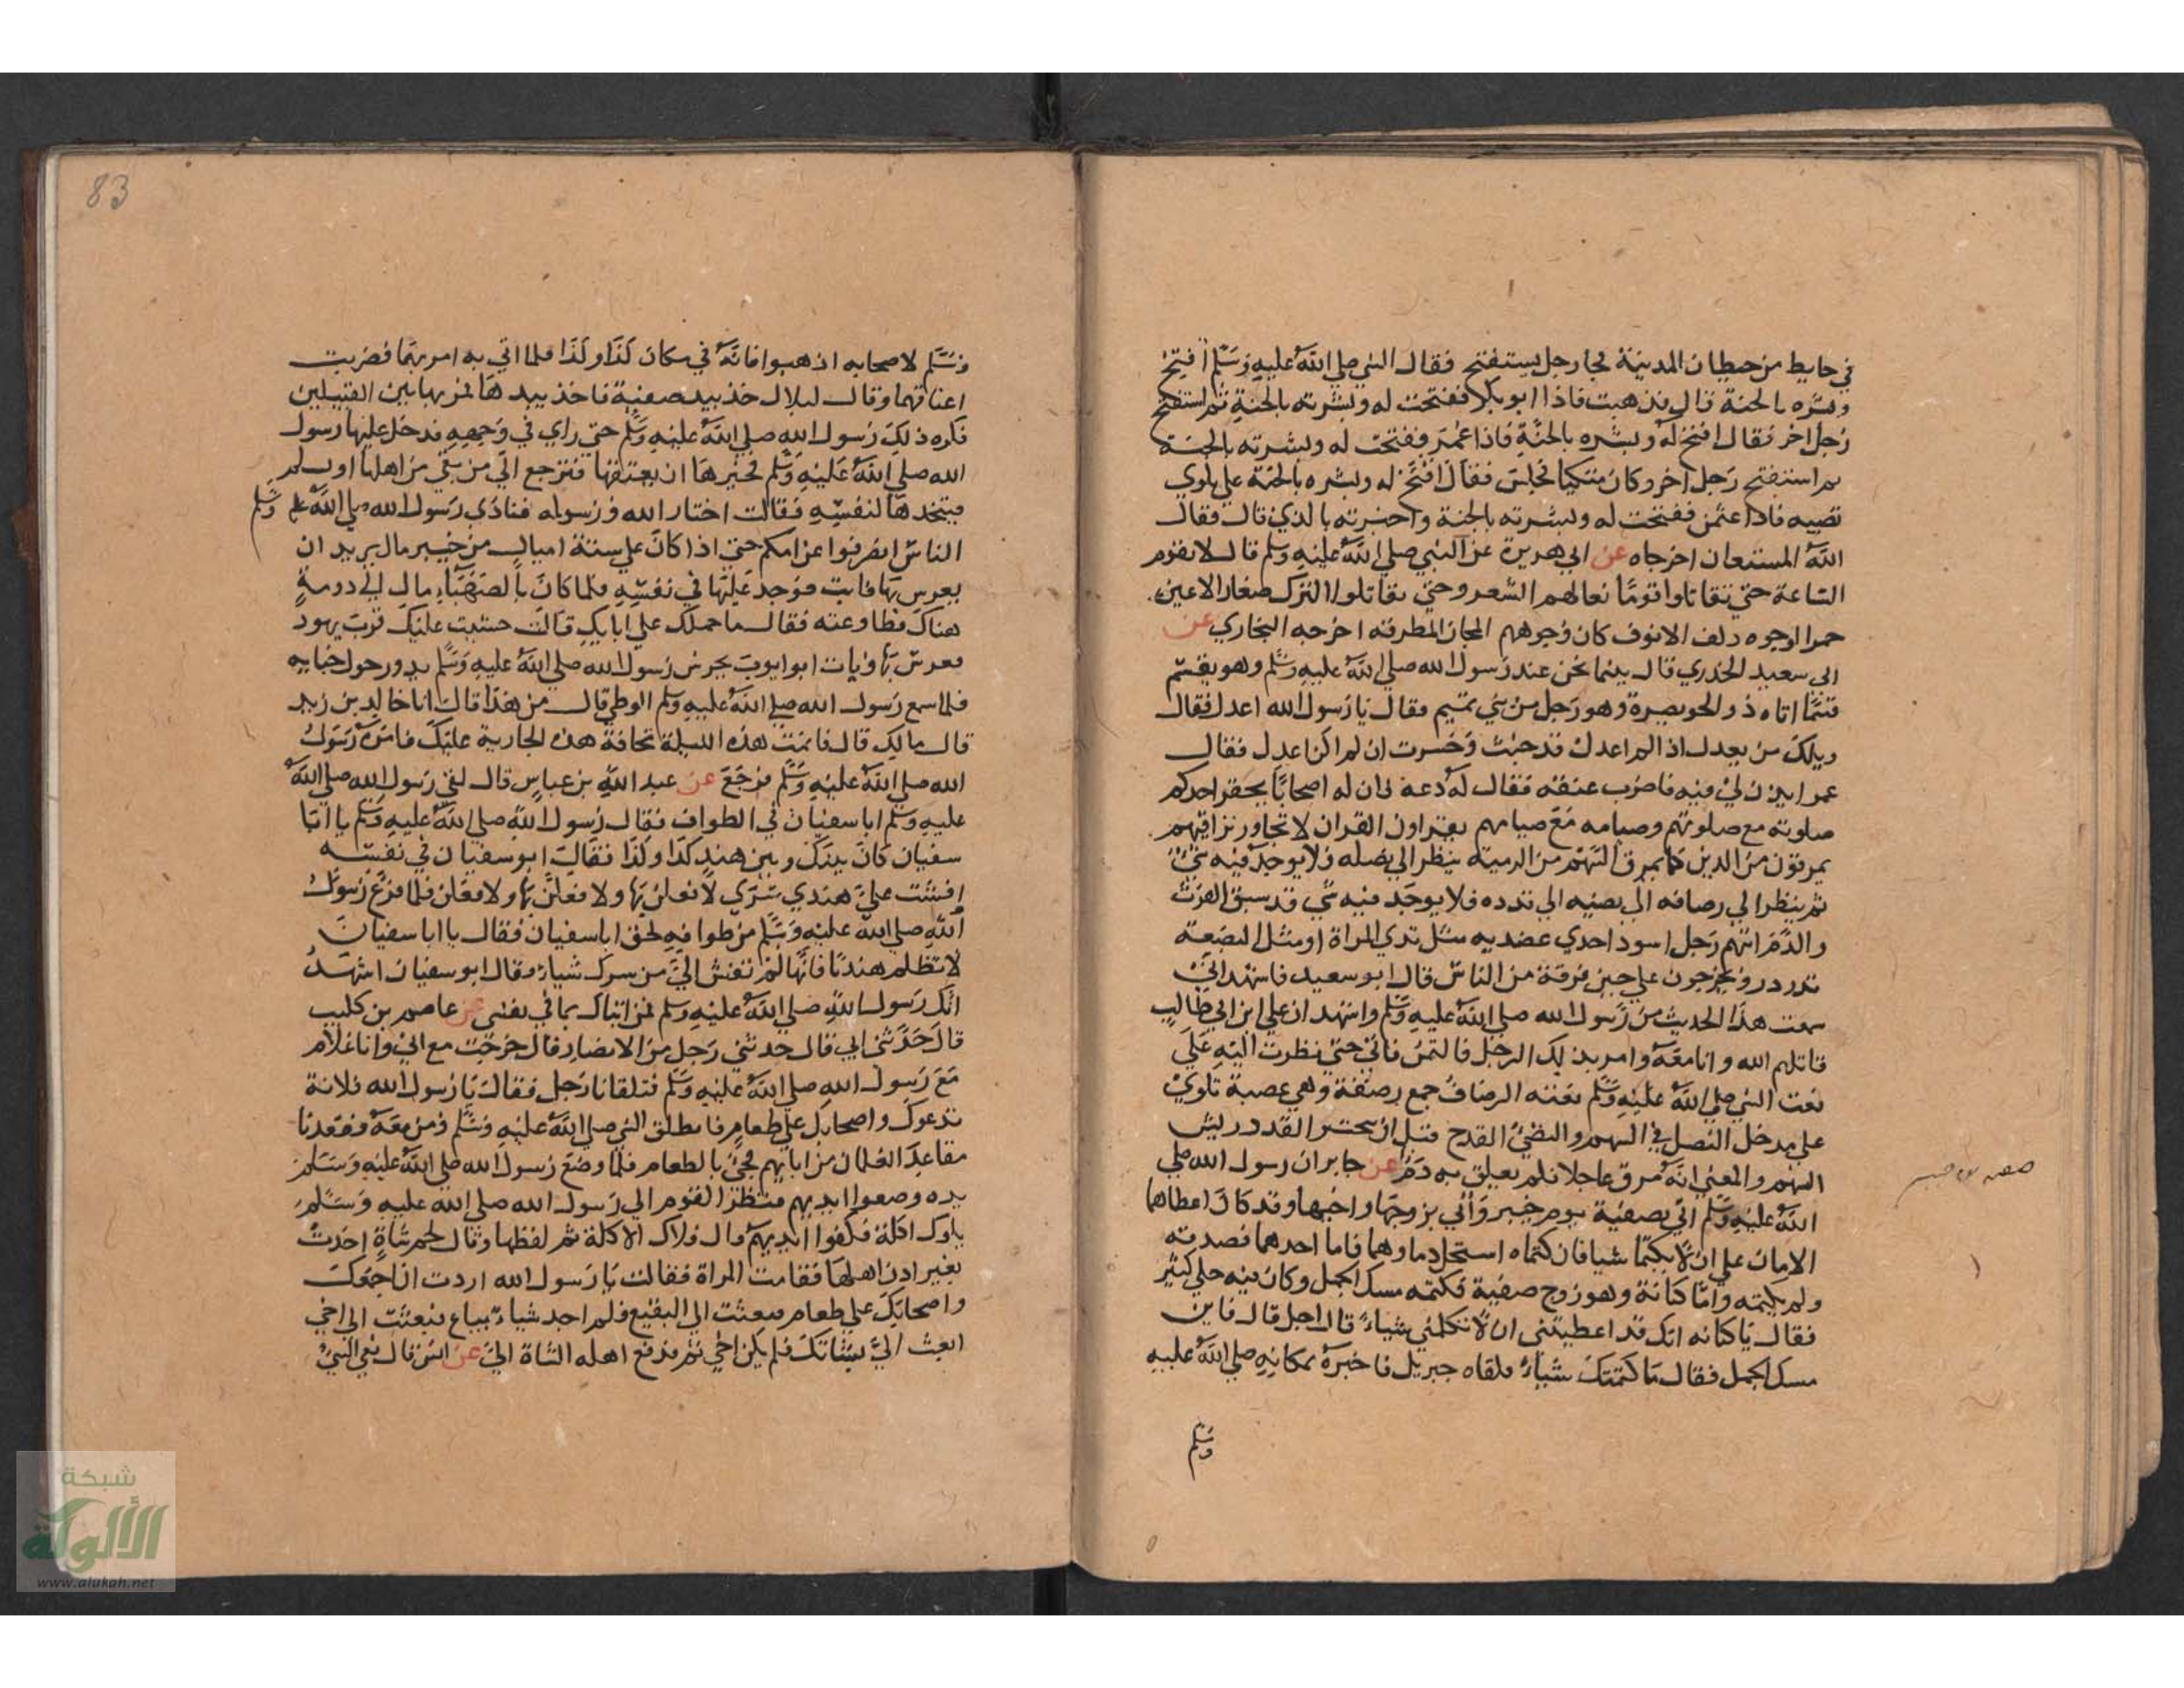 في حايط من حيطان المدينة فجا رجل يستفتح فقال النبي صلي الله عليه وسلم افتح
وبشره بالجنة قال فذهبت فاذا ابو بكر ففتحت له وبشرته بالجنة ثم استفتح
رجل اخر فقال افتح له وبشره بالجنة فاذا عمر ففتحت له وبشرته بالجنة
ثم استفتح رجل اخر وكان متكيا فجلس فقال افتح له وبشره بالجنة علي بلوي
تصيبه فاذا عثمن ففتحت له وبشرته بالجنة واخبرته بالذي قال فقال
الله المستعان اخرجاه عن ابي هريرة عن النبي صلي الله عليه وسلم قال لا تقوم
الساعة حتي تقاتلوا قوما نعالهم الشعر وحتي تقاتلوا الترك صغار الاعين
حمر الوجوه دلف الانوف كان وجوههم المجان المطرقه اخرجه البخاري عن
ابي سعيد الخدري قال بينما نحن عند رسول الله صلي الله عليه وسلم وهو يقسم
قسما اتاه ذو الخويصرة وهو رجل من بني تميم فقال يا رسول الله اعدل فقال
ويلك من يعدل اذا لم اعدل قد خبت وخسرت ان لم اكن اعدل فقال
عمر ايذن لي فيه فاضرب عنقه فقال له دعه فان له اصحابا يحقر احدكم
صلوته مع صلوتهم وصيامه مع صيامهم يقراون القران لا تجاوز تراقيهم
يمرقون من الدين كما يمرق السهم من الرمية ينظر الي نصله فلا يوجد فيه شي
ثم ينظر الي رصافه الي نضيه الي قدده فلا يوجد فيه شي قد سبق الفرث
والدم ايتهم رجل اسود احدي عضديه مثل ثدي المراة او مثل البضعة
تدردر ويخرجون علي حين فرقة من الناس قال ابو سعيد فاشهد اني
سمعت هذا الحديث من رسول الله صلي الله عليه وسلم واشهد ان علي ابن ابي طالب
قاتلهم الله وانا معه وامر بذلك الرجل فالتمس فاتي حتي نظرت اليه علي
نعت النبي صلي الله عليه وسلم نعته الرصاف جمع رصفة وهي عصبة تلوي
علي مدخل النصل في السهم والنضي القدح قبل ان ينحت والقدد ريش
السهم والمعني انه مرق عاجلا فلم يعلق به دم عن جابر ان رسول الله صلي
الله عليه وسلم اتي بصفية يوم خيبر وأتي بزوجها واخيها وقد كان اعطاها
الامان علي ان لا يكتما شيا فان كتماه استحل دماوهما فاما احدهما فصدقه
ولم يكتمه واما كنانة وهو زوج صفية فكتمه مسك الجمل وكان فيه حلي كثير
فقال يا كنانه انك قد اعطيتني ان لا تكتمني شياء قال اجل قال فاين
مسك الجمل فقال ما كتمتك شياء فلقاه جبريل فاخبره بمكانه صلي الله عليه
وسلم
1
83
وسلم لاصحابه اذهبوا فانه في مكان كذا وكذا فلما اتي به امر بهما فضربت
اعناقهما وقال لبلال خذ بيد صفية فاخذ بيدها فمر بها بين القتيلين
فكره ذلك رسول الله صلي الله عليه وسلم حتي راي في وجهه فدخل عليها رسول
الله صلي الله عليه وسلم فخيرها ان يعتقها فترجع الي من بقي من اهلها او تسلم
فيتخذها لنفسه فقالت اختار الله ورسوله فنادي رسول الله صلي الله عليه وسلم
الناس انصرفوا عن امكم حتي اذا كان علي ستة اميال من خيبر مال يريد ان
يعرس بها فابت فوجد عليها في نفسه فلما كان بالصهباء مال الي دومة
هناك فطاوعته فقال ما حملك علي ابايك قالت خشيت عليك قرب يهود
فعرس بها وبات ابو ايوب يحرس رسول الله صلي الله عليه وسلم يدور حول خبايه
فلما سمع رسول الله صلي الله عليه وسلم الوطي قال من هذا قال انا خالد بن زيد
قال مالك قال ما نمت هذه الليلة مخافة هذه الجارية عليك فامره رسول
الله صلي الله عليه وسلم فرجع عن عبد الله بن عباس قال لقي رسول الله صلي الله
عليه وسلم ابا سفيان في الطواف فقال رسول الله صلي الله عليه وسلم يا ابا
سفيان كان بينك وبين هند كذا وكذا فقال ابو سفيان في نفسه
افشت علي هندي سري لافعلن بها ولافعلن بها ولافعلن فلما فرغ رسول
الله صلي الله عليه وسلم من طوافه لحق ابا سفيان فقال يا ابا سفيان
لا تظلم هندا فانها لم تفش الي من سرك شياء وقال ابو سفيان اشهد
انك رسول الله صلي الله عليه وسلم فمن انباك بما في نفسي عن عاصم بن كليب
قال حدثني ابي قال حدثني رجل من الانصار قال خرجت مع ابي وانا غلام
مع رسول الله صلي الله عليه وسلم فتلقانا رجل فقال يا رسول الله فلانة
تدعوك واصحابك علي طعام فانطلق النبي صلي الله عليه وسلم ومن معه فقعدنا
مقاعد الغلمان من ابايهم فجي بالطعام فلما وضع رسول الله صلي الله عليه وسلم
يده وضعوا ايديهم فنظر القوم الي رسول الله صلي الله عليه وسلم
يلوك اكلة فكفوا ايديهم قال فلاك الاكلة ثم لفظها وقال لحم شاة اخذت
بغير اذن اهلها فقامت المراة فقالت يا رسول الله اردت ان اجمعك
واصحابك علي طعام فبعثت الي البقيع فلم اجد شياء يباع فبعثت الي اخي
ابعث الي بشاتك فلم يكن اخي ثم فدفع اهله الشاة الي عن انس قال نعي النبي
شبكة
الألوكة
www.alukah.net